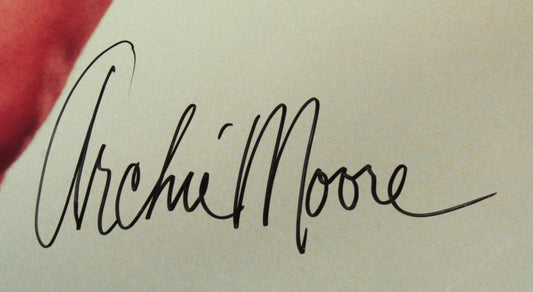 Archie Moore